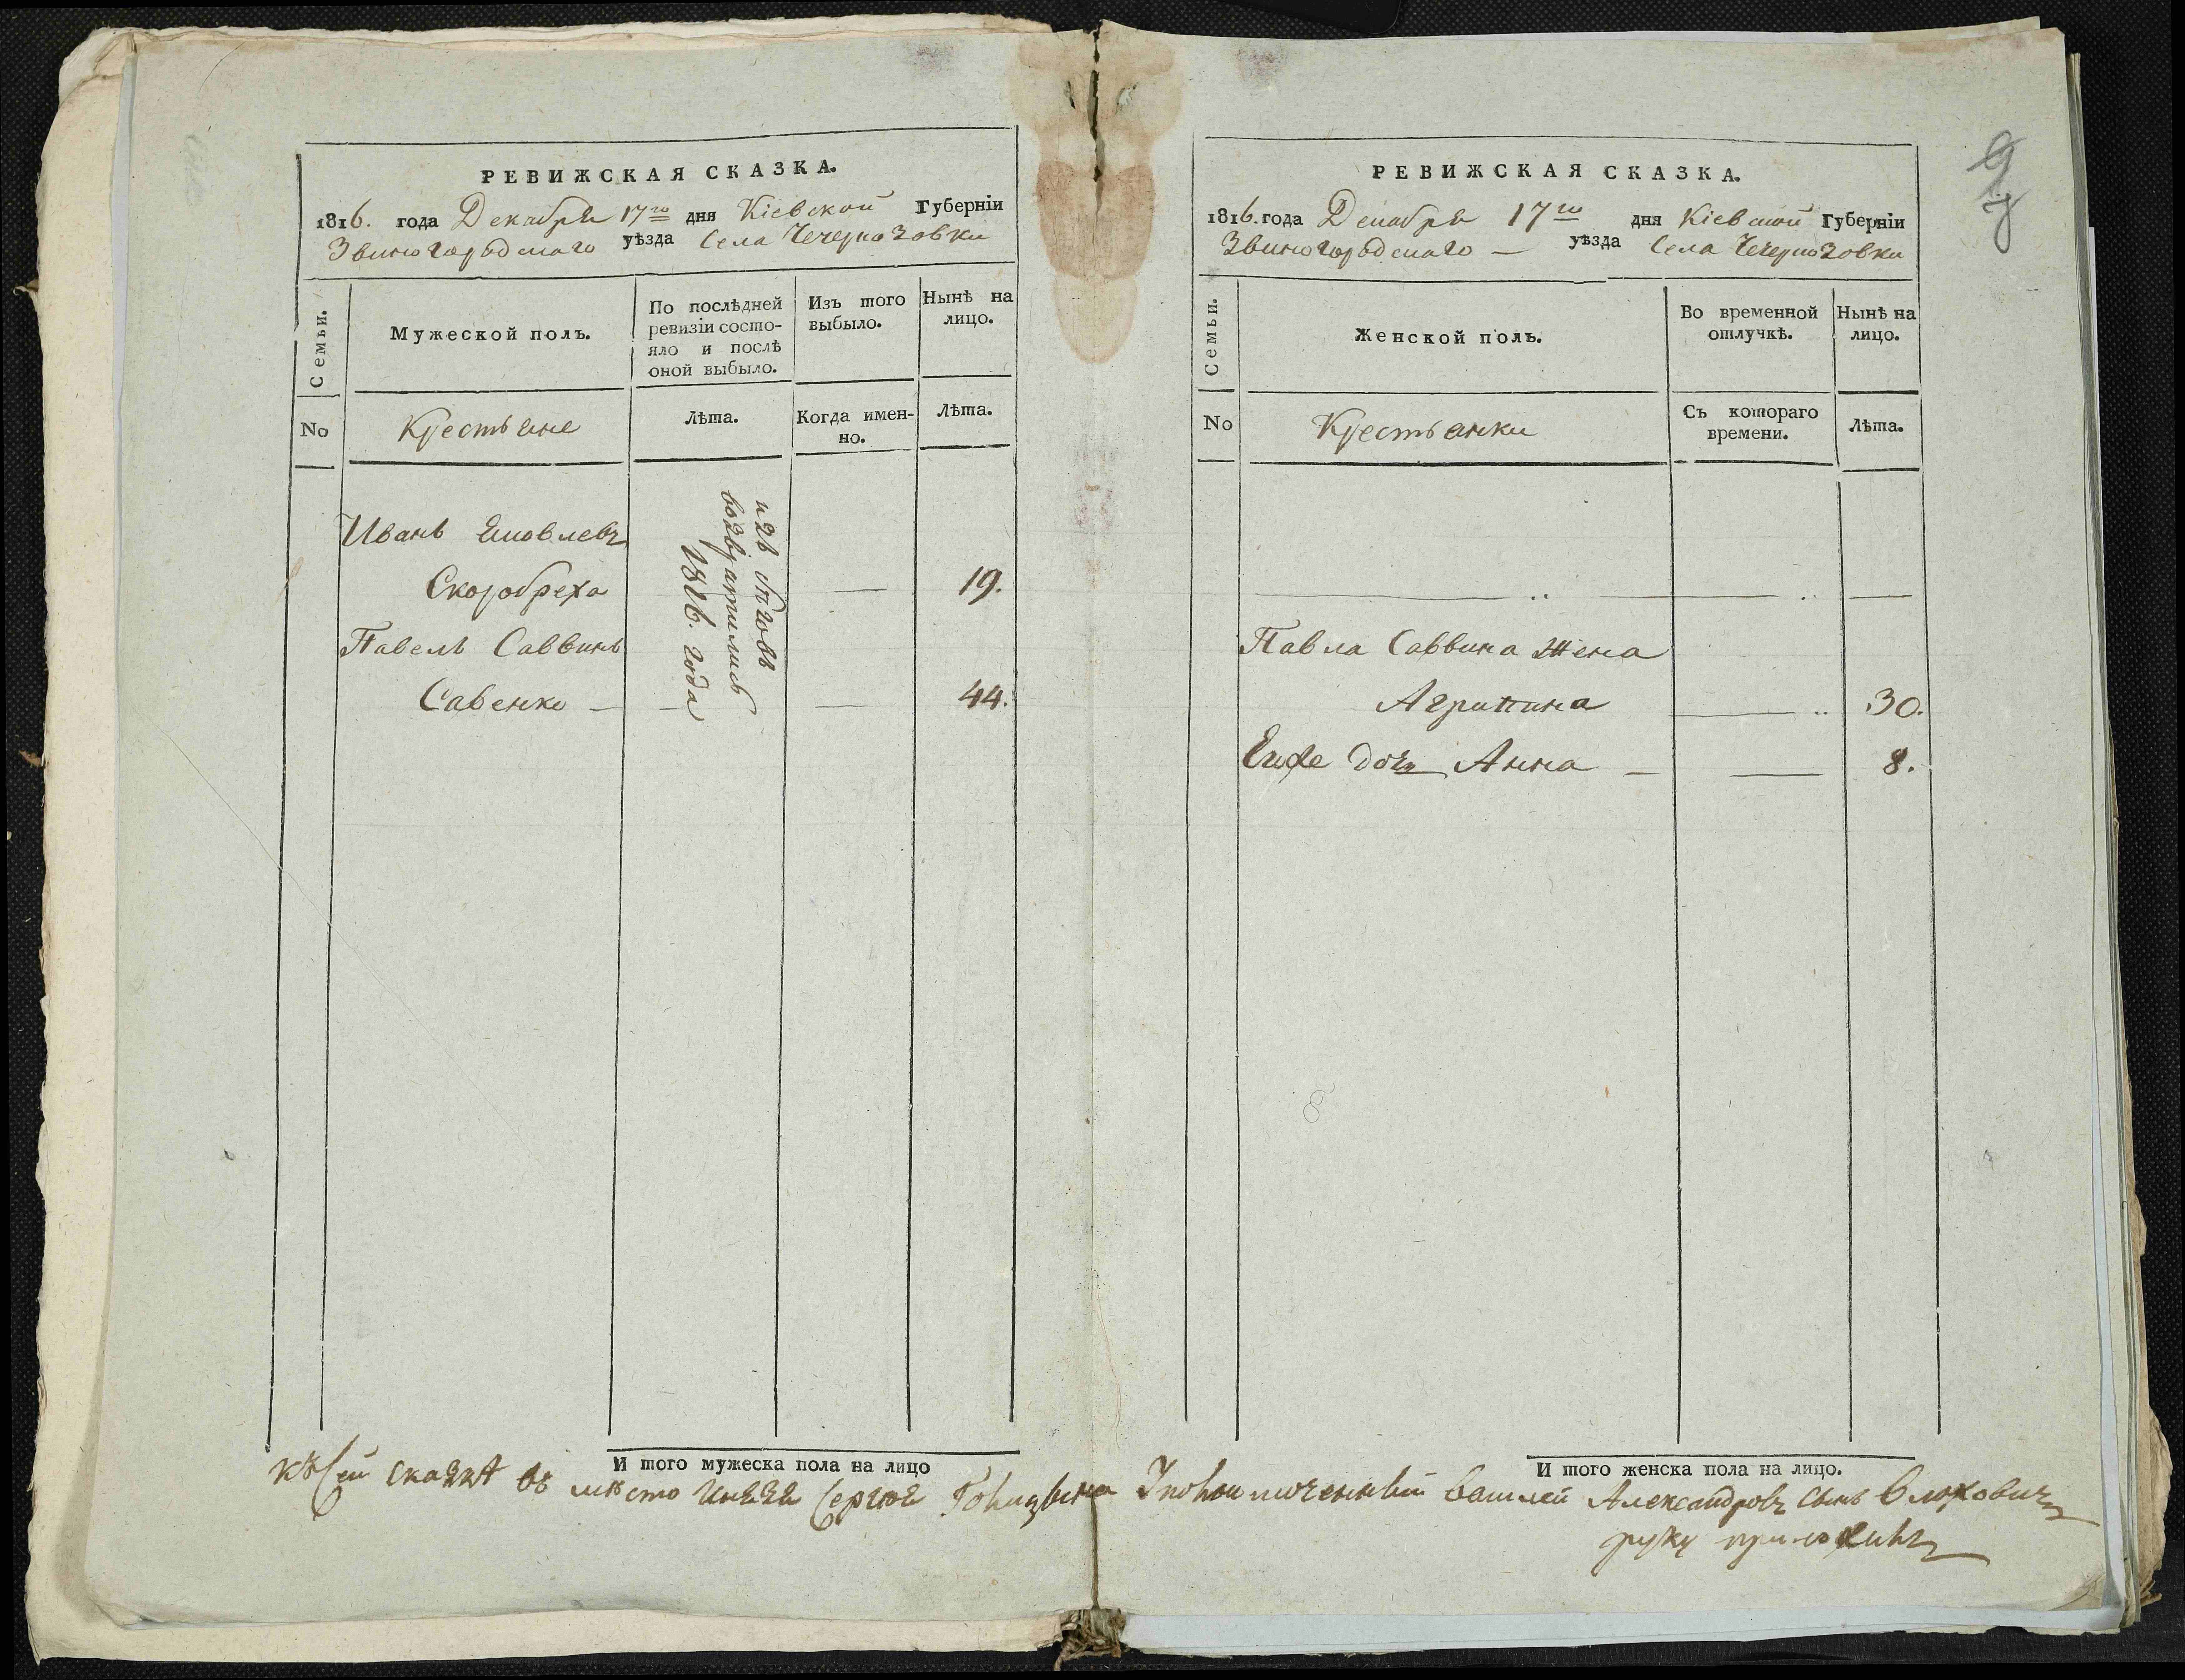 РЕВИЖСКАЯ СКАЗКА.
1816. года Декабря 17го дня Кіевской Губерніи
Звиногородскаго уѣзда Села Чечерпозовки
Семьи.
Мужеской полъ.
По послѣдней ревизіи состо-
яло и послѣ
оной выбыло.
Изъ того
выбыло.
Нынѣ на
лицо.
No
Крестьяне
Лѣта.
Когда имен-
но.
Лѣта.
Иванъ Яковлевъ
Скоробреха — 19.
Павелъ Саввинъ
Савенко — — — 44.
изъ бѣговъ
возвратились
1816. года
И того мужеска пола на лицо
РЕВИЖСКАЯ СКАЗКА.
1816. года Декабря 17го дня Кіевской Губерніи
Звиногородскаго — уѣзда Села Чечерпозовки
Семьи.
Женской полъ.
Во временной
отлучкѣ.
Нынѣ на
лицо.
No
Крестьянки
Съ котораго
времени.
Лѣта.
Павла Саввина Жена
Агрипина — 30.
Ихже дочь Анна — — 8.
И того женска пола на лицо.
Къ сей сказкѣ въ мѣсто Князя Сергѣя Голицына Уполномоченный Василей Александровъ сынъ
руку приложилъ